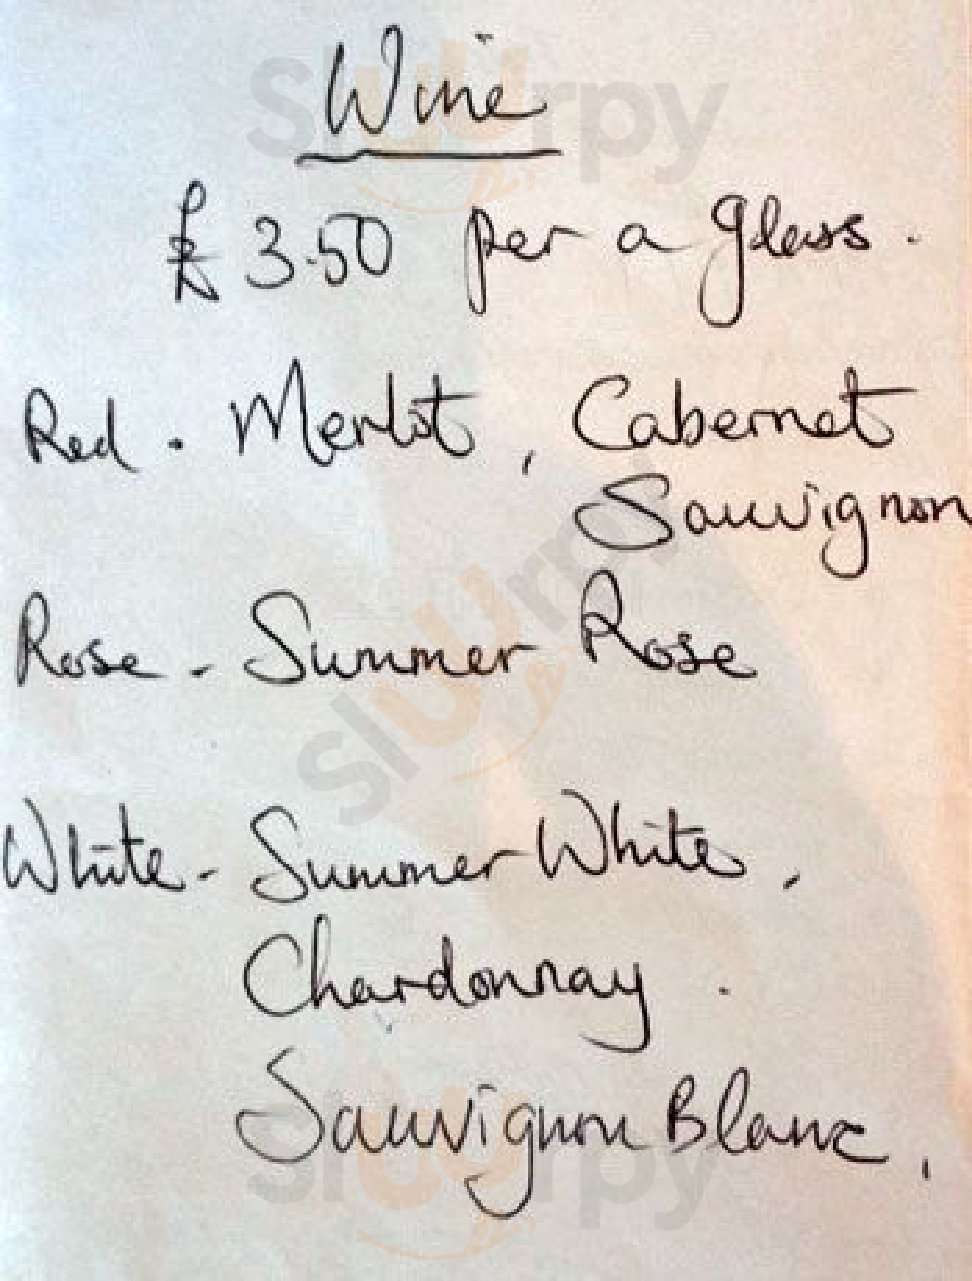 Wine
£3.50 per a glass.
Red - Merlot, Cabernet
Sauvignon
Rose - Summer Rose
White - Summer White,
Chardonnay.
Sauvignon Blanc,
Slurpy
Slurpy
Slurpy